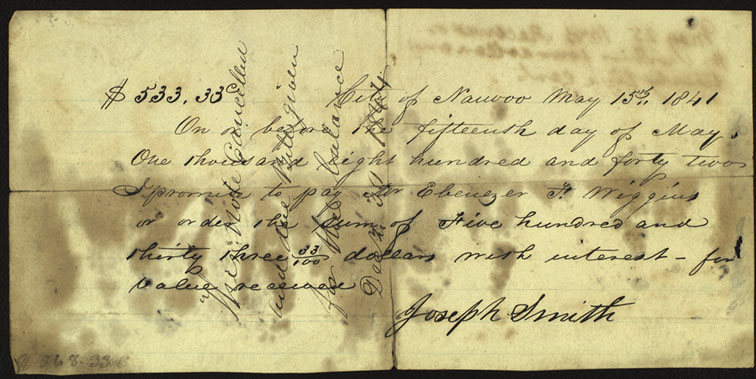 $ 533,33c City of Nauvoo May 15th, 1841
On or before the fifteenth day of May
One thousand eight hundred and forty two
I promise to pay Mr Ebenezer F. Wiggins
or order the sum of Five hundred and
thirty three 33/100 dollars with interest – for
value received
Joseph Smith
Note Cancelled
and due Bill given
for the balance
1844
May 25